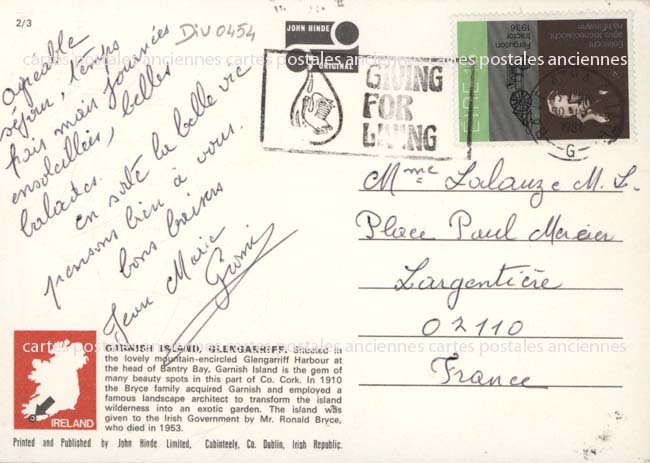 2/3
Div 0454
JOHN HINDE
ORIGINAL
GIVING
FOR
LIVING
Ferguson
tractor
1936
Eolaíocht
agus teicneolaíocht
na hÉireann
ÉIRE
G
cartes postales anciennes cartes postales anciennes cartes postales anciennes
Agréable
séjour, temps
frais mais journées
ensoleillées, belles
balades.
en suite la belle vie
pensons bien à vous.
bons baisers
Jean Marie
Mme Lalauze M. L.
Place Paul Mercier
Largentière
07110
France
IRELAND
GARNISH ISLAND, GLENGARRIFF. Situated in
the lovely mountain-encircled Glengarriff Harbour at
the head of Bantry Bay, Garnish Island is the gem of
many beauty spots in this part of Co. Cork. In 1910
the Bryce family acquired Garnish and employed a
famous landscape architect to transform the island
wilderness into an exotic garden. The island was
given to the Irish Government by Mr. Ronald Bryce,
who died in 1953.
cartes postales anciennes cartes postales anciennes cartes postales anciennes
Printed and Published by John Hinde Limited, Cabinteely, Co. Dublin, Irish Republic.